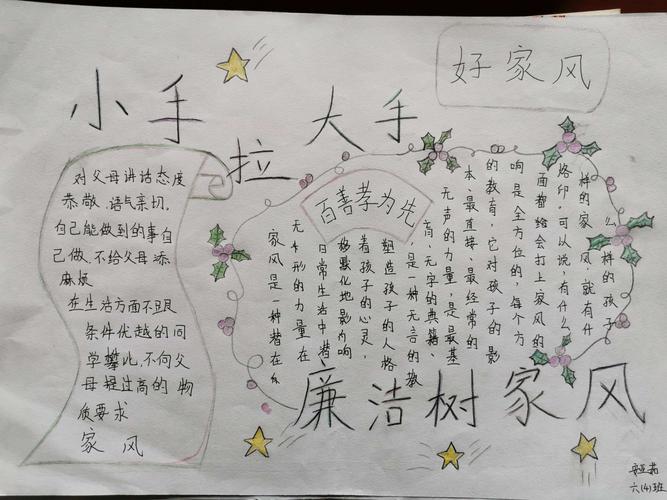 好家风
小手拉大手
对父母讲话态度
恭敬、语气亲切,
自己能做到的事自
己做、不给父母添
麻烦
在生活方面不跟
条件优越的同
学攀比,不向父
母提过高的物
质要求
家风
百善孝为先
家风是一种潜在
无形的力量在
日常生活中潜
移默化地影响
着孩子的心灵,
塑造孩子的人格
,是一种无言的教
育、无字的典籍、
无声的力量,是最基
本、最直接、最经常的
的教育,它对孩子的影
响是全方位的,每个方
面都给会打上家风的
烙印,可以说,有什么
样的家风,就有什
么样的孩子
廉洁树家风
六(4)班